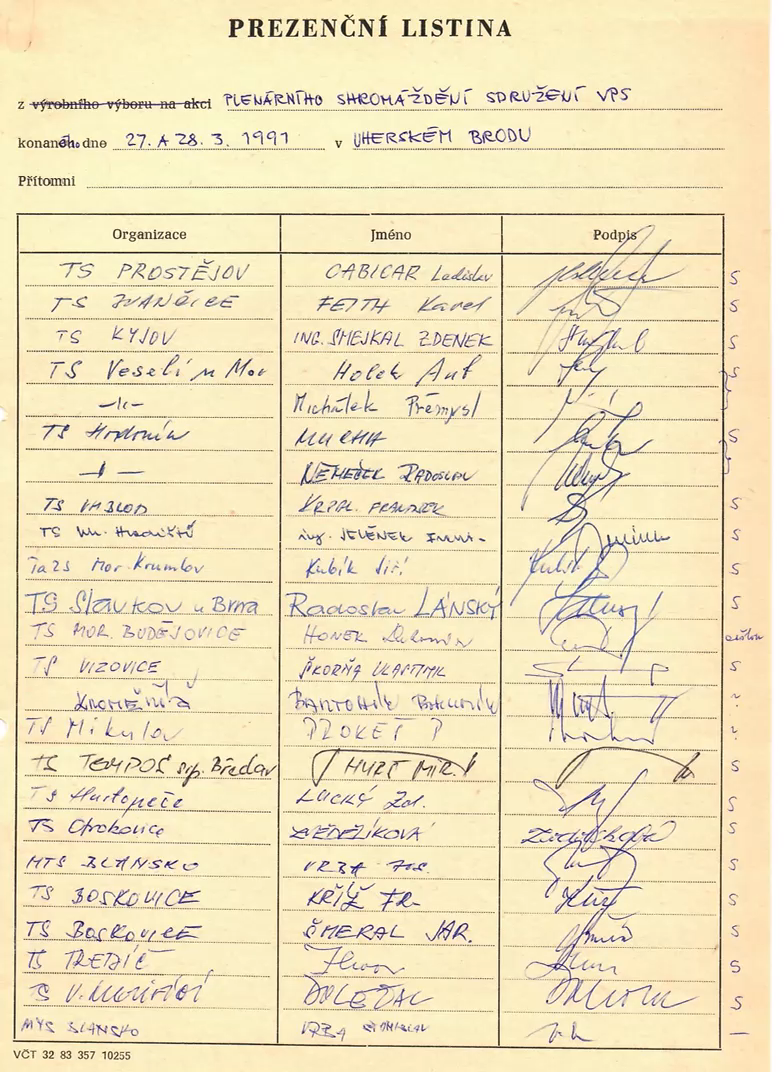 PREZENČNÍ LISTINA
z výrobního výboru na akci PLENÁRNÍHO SHROMÁŽDĚNÍ SDRUŽENÍ VPS
konaného dne 27. A 28. 3. 1991 v UHERSKÉM BRODU
Přítomni
Organizace Jméno Podpis
TS PROSTĚJOV CABICAR Ladislav S
TS IVANČICE FEITH Karel S
TS KYJOV ING. SMEJKAL ZDENEK S
TS Veselí n Mor Holek Ant S
-"- Michálek Přemysl
TS Hodonín MUCHA S
-"- NĚMEČEK RADOSLAV
TS KRPAL FRANTIŠEK S
TS Uh. Hradiště ing. JELÉNEK S
TaZS Mor. Krumlov Kubík Jiří S
TS Slavkov u Brna Radoslav LÁNSKÝ S
TS MOR. BUDĚJOVICE HONEK S
TS VIZOVICE ŠKORŇA VLASTIMIL S
KROMĚŘÍŽ ?
TS Mikulov PROKEŠ P ?
TS TEMPOS s.p. Břeclav HURT MIR. S
TS Hustopeče LUCKÝ Zd. S
TS Otrokovice ZDEDĚLÍKOVÁ S
MTS BLANSKO VRBA S
TS BOSKOVICE KŘÍŽ FR. S
TS BOSKOVICE ŠMERAL JAR. S
TS TŘEBÍČ S
TS V. MEZIŘÍČÍ DOLEŽAL S
MTS BLANSKO VRBA STANISLAV —
VČT 32 83 357 10255